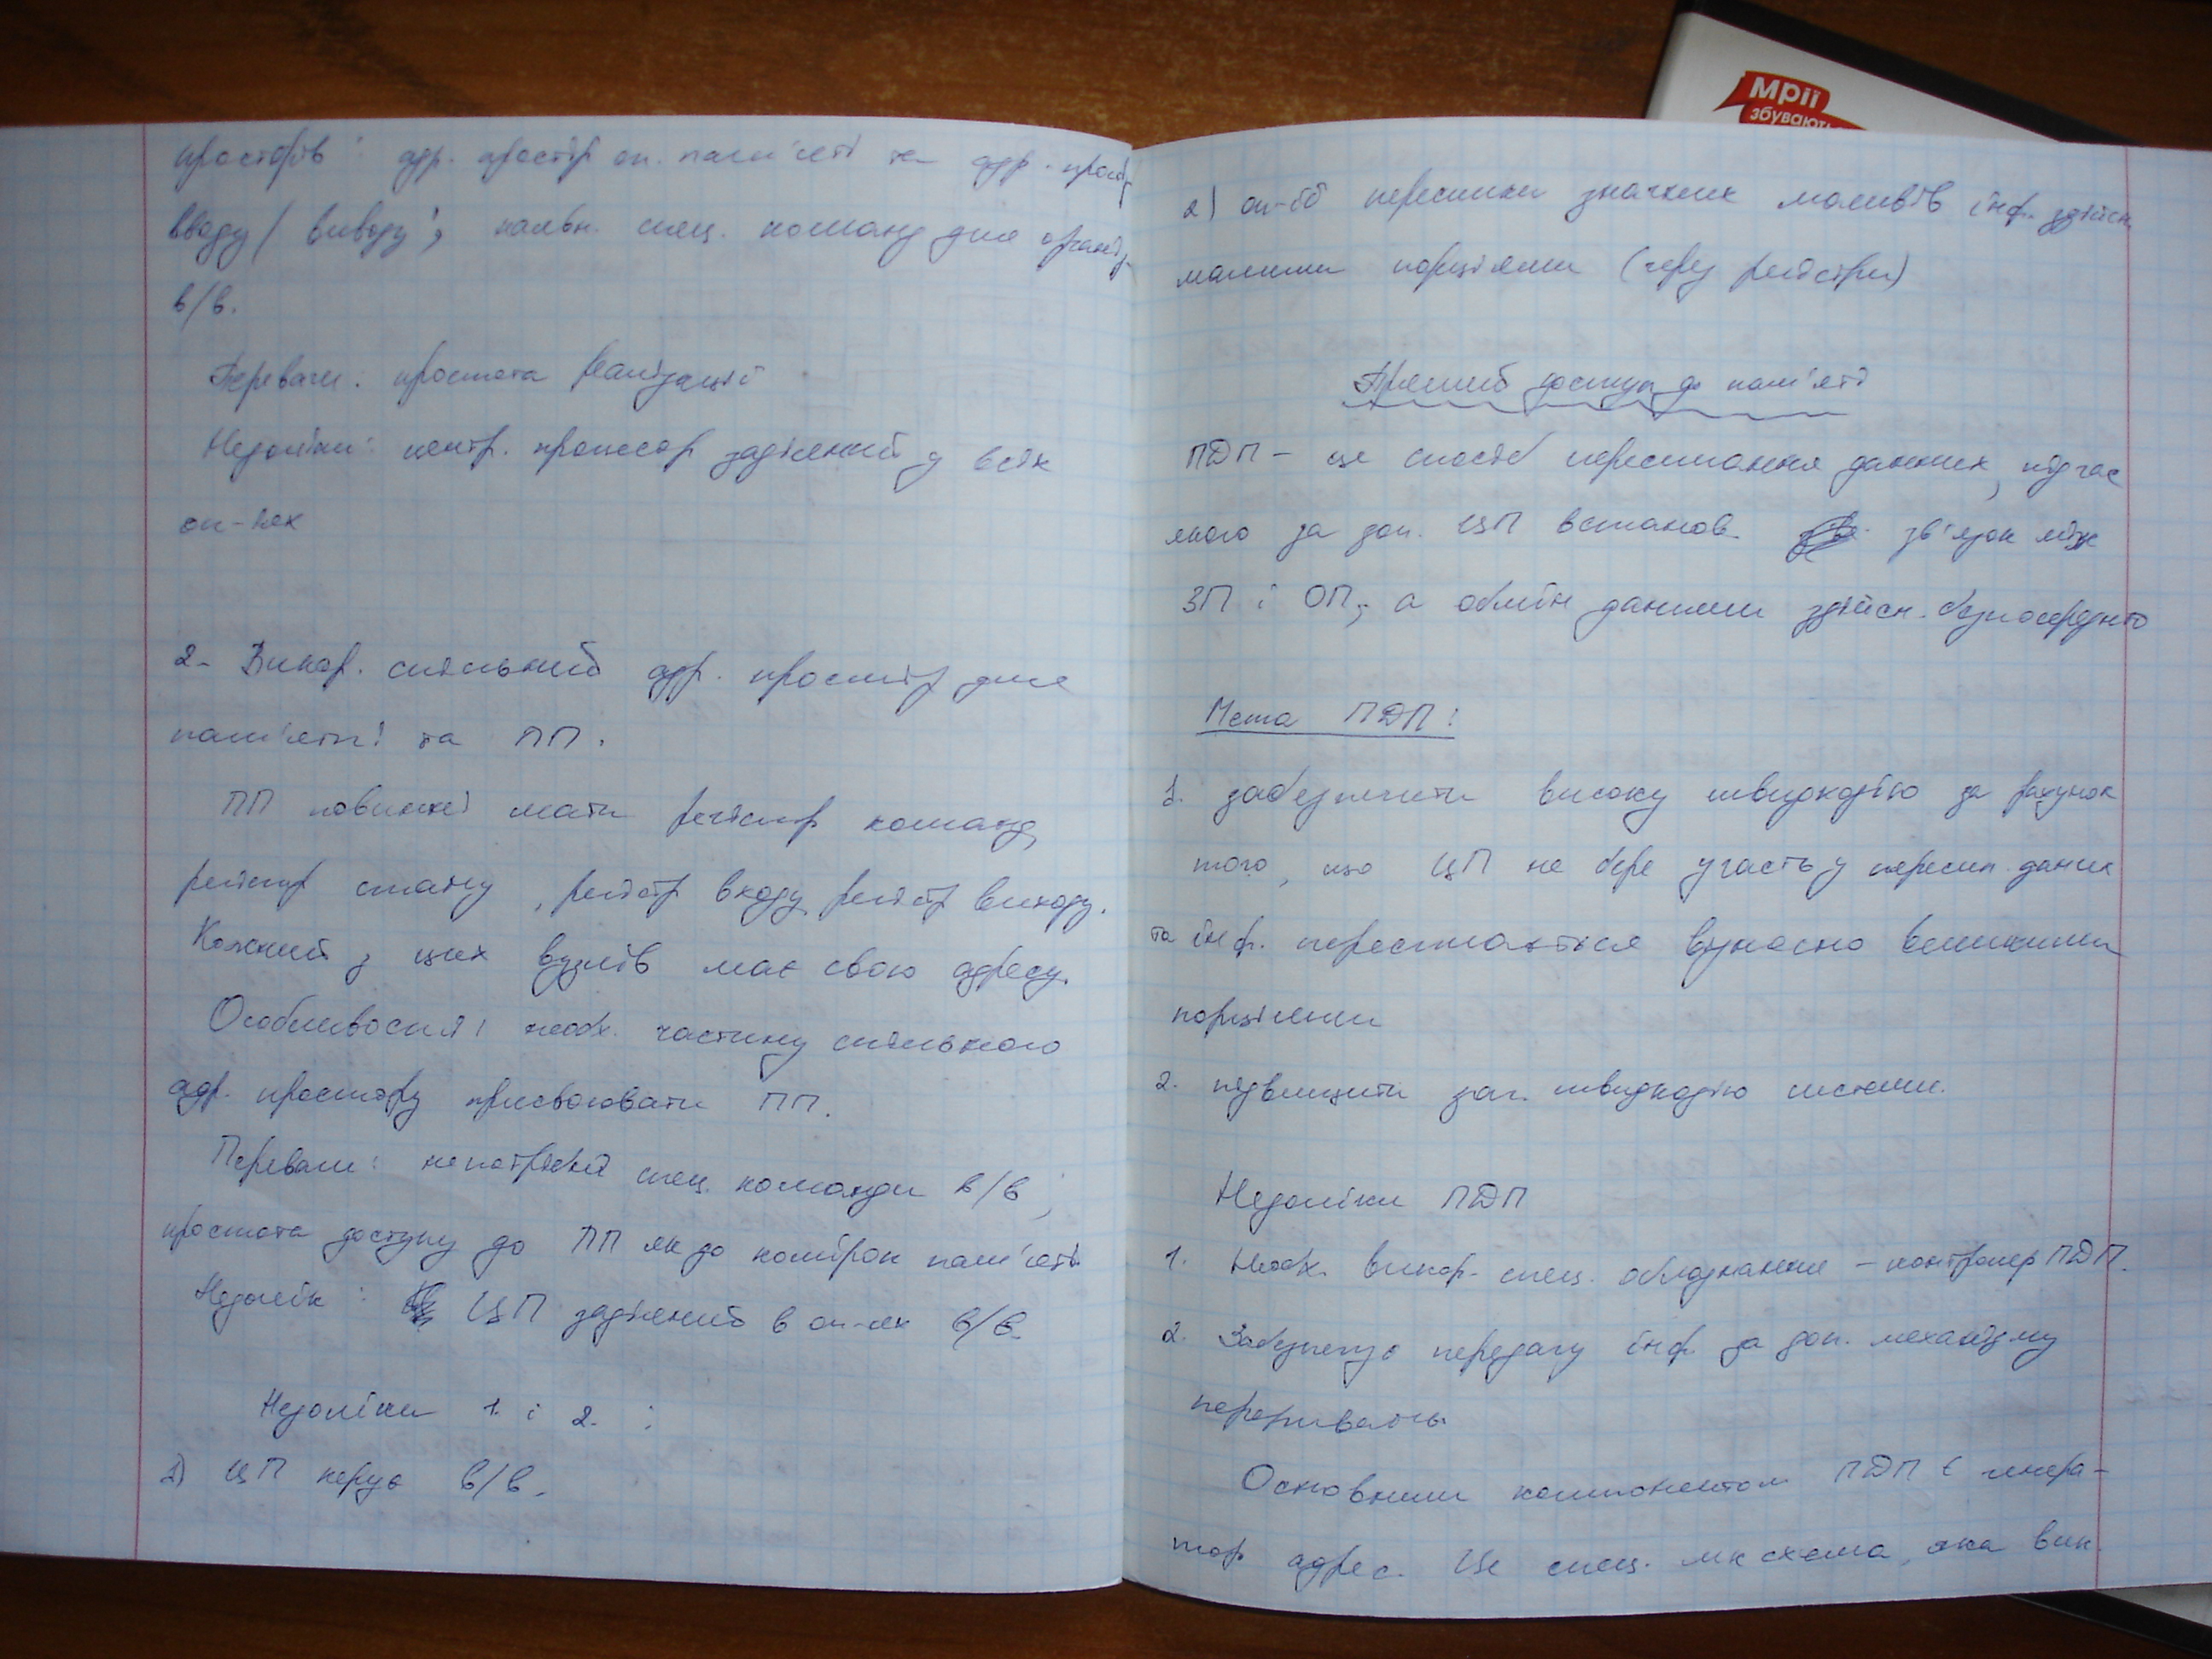 просторів: адр. простір оп. пам'яті та адр. прост.
вводу/виводу; наявн. спец. команд для організ.
в/в.
Переваги: простота реалізації
Недоліки: центр. процесор задіяний у всіх
оп-іях
2. Викор. спільний адр. простір для
пам'яті та ПП.
ПП повинні мати регістр команд,
регістр стану, регістр входу, регістр виходу.
Кожний з цих вузлів має свою адресу.
Особливості: необх. частину спільного
адр. простору присвоювати ПП.
Переваги: непотрібні спец. команди в/в;
простота доступу до ПП як до комірок пам'яті
Недолік: ЦП задіяний в оп-іях в/в.
Недоліки 1. і 2. :
1) ЦП керує в/в.
2) оп-ії пересилки значних масивів інф. здійсн
малими порціями (через регістри)
Прямий доступ до пам'яті
ПДП - це спосіб пересилання данних, під час
якого за доп. ЦП встанов. зв'язок між
ЗП і ОП, а обмін даними здійсн. безпосередньо
Мета ПДП:
1. забезпечити високу швидкодію за рахунок
того, що ЦП не бере участь у пересил. даних
та інф. пересилається відносно великими
порціями
2. підвищити заг. швидкодію системи.
Недоліки ПДП
1. Необх. викор. спец. обладнання - контролер ПДП.
2. Забезпечує передачу інф. за доп. механізму
переривань
Основним компонентом ПДП є генера-
тор адрес. Це спец. мк схема, яка вик.
Мрії
збувають